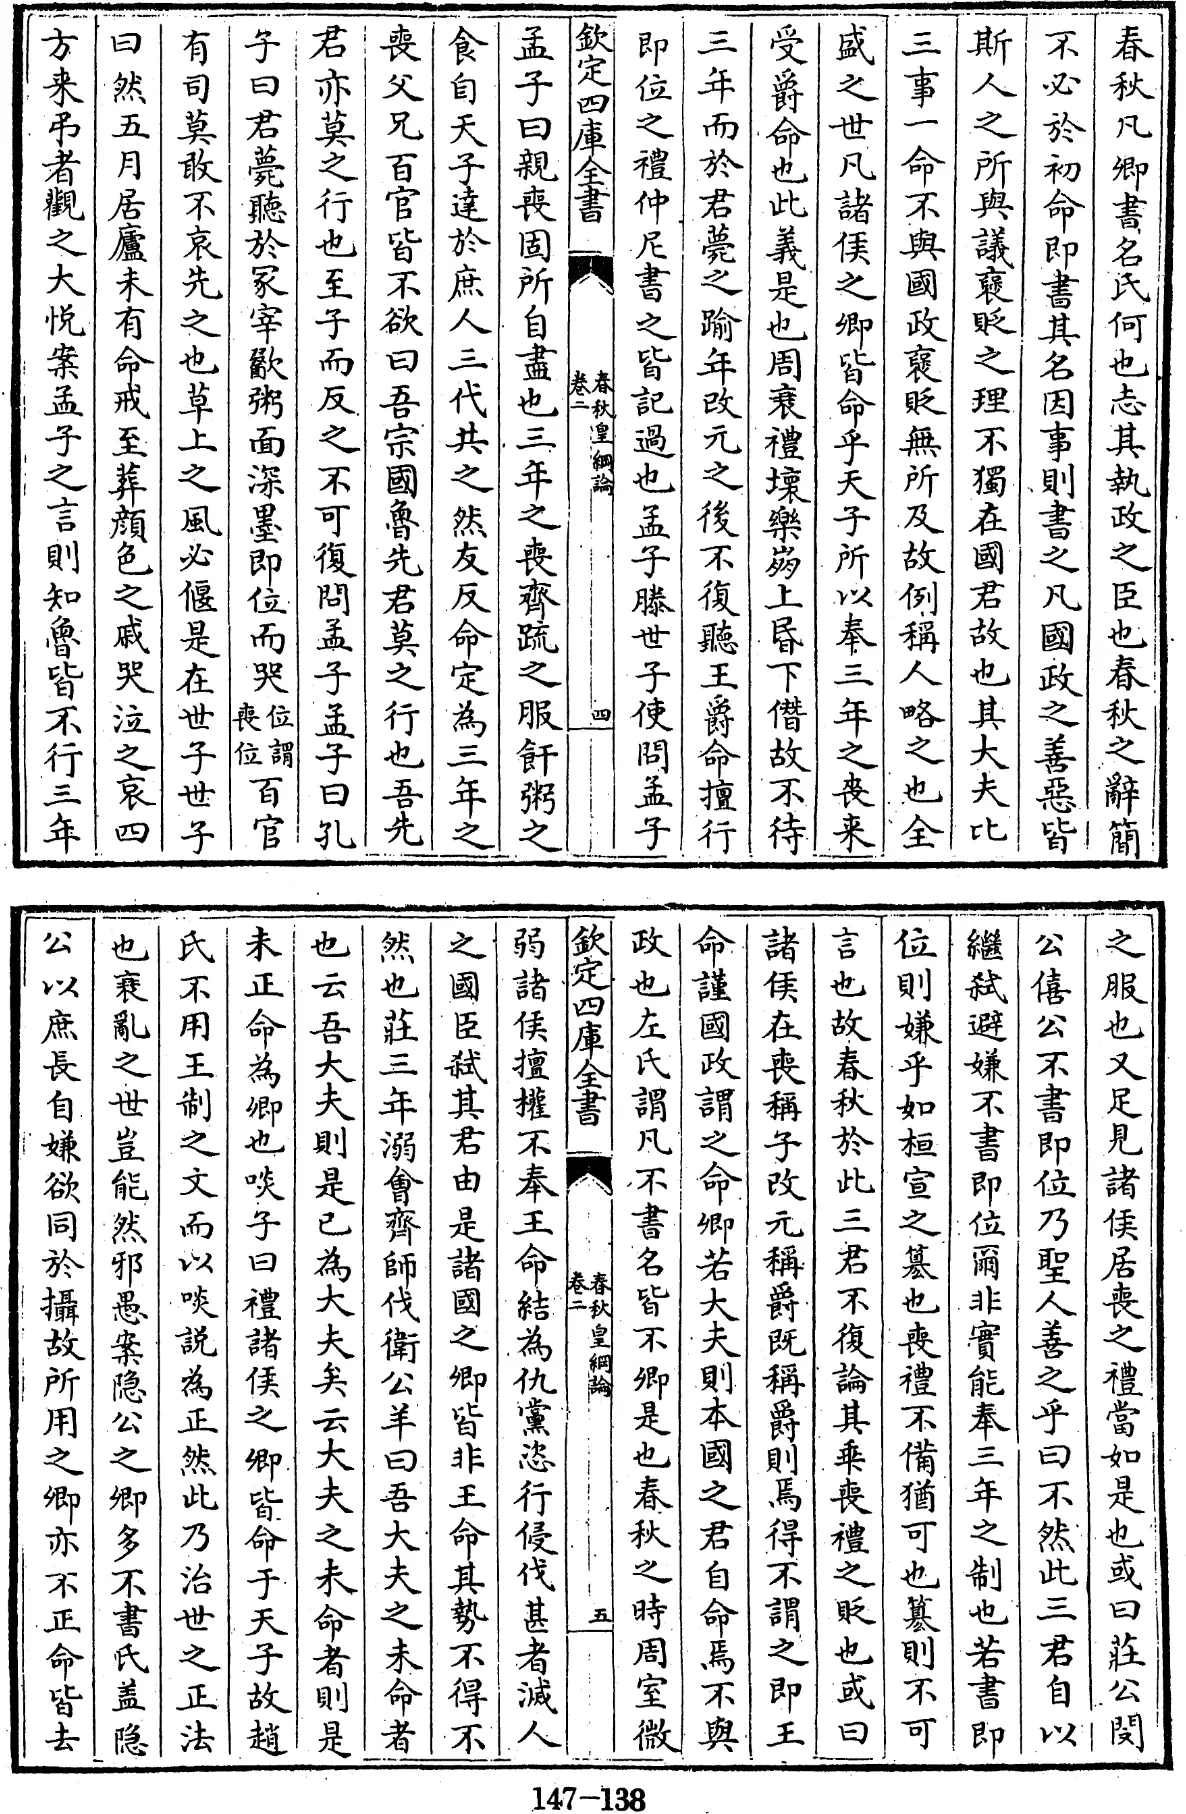 春秋凡卿書名氏何也志其執政之臣也春秋之辭簡
不必於初命即書其名因事則書之凡國政之善惡皆
斯人之所與議褒貶之理不獨在國君故也其大夫比
三事一命不與國政褒貶無所及故例稱人略之也全
盛之世凡諸侯之卿皆命乎天子所以奉三年之喪来
受爵命也此義是也周衰禮壞樂崩上昏下僭故不待
三年而於君薨之踰年改元之後不復聽王爵命擅行
即位之禮仲尼書之皆記過也孟子滕世子使問孟子
欽定四庫全書
春秋皇綱論
卷二
四
孟子曰親喪固所自盡也三年之喪齊疏之服飦粥之
食自天子達於庶人三代共之然友反命定為三年之
喪父兄百官皆不欲曰吾宗國魯先君莫之行也吾先
君亦莫之行也至子而反之不可復問孟子孟子曰孔
子曰君薨聽於冡宰歠粥面深墨即位而哭位謂喪位百官
有司莫敢不哀先之也草上之風必偃是在世子世子
曰然五月居廬未有命戒至葬顔色之戚哭泣之哀四
方来弔者觀之大悦案孟子之言則知魯皆不行三年
之服也又足見諸侯居喪之禮當如是也或曰莊公閔
公僖公不書即位乃聖人善之乎曰不然此三君自以
繼弑避嫌不書即位爾非實能奉三年之制也若書即
位則嫌乎如桓宣之簒也喪禮不備猶可也簒則不可
言也故春秋於此三君不復論其乘喪禮之貶也或曰
諸侯在喪稱子改元稱爵既稱爵則焉得不謂之即王
命謹國政謂之命卿若大夫則本國之君自命焉不與
政也左氏謂凡不書名皆不卿是也春秋之時周室微
欽定四庫全書
春秋皇綱論
卷二
五
弱諸侯擅權不奉王命結為仇黨恣行侵伐甚者滅人
之國臣弑其君由是諸國之卿皆非王命其勢不得不
然也莊三年溺會齊師伐衛公羊曰吾大夫之未命者
也云吾大夫則是已為大夫矣云大夫之未命者則是
未正命為卿也啖子曰禮諸侯之卿皆命于天子故趙
氏不用王制之文而以啖説為正然此乃治世之正法
也衰亂之世豈能然邪愚案隐公之卿多不書氏盖隐
公以庶長自嫌欲同於攝故所用之卿亦不正命皆去
147-138